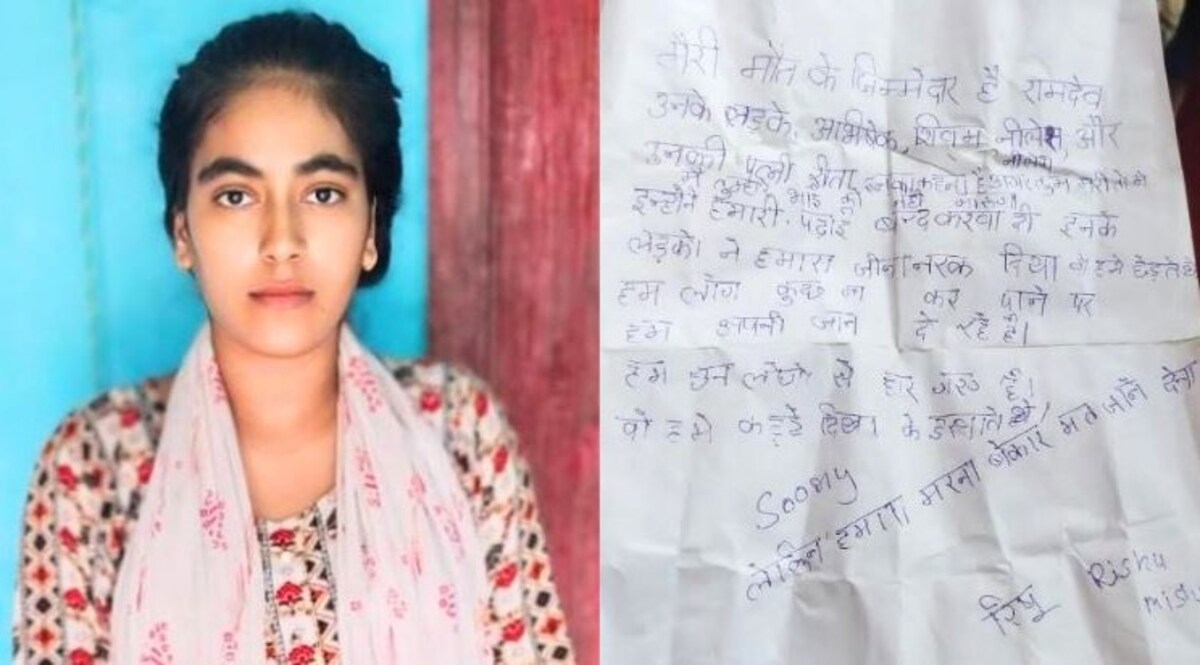 मेरी मौत के जिम्मेदार है रामदेव
उनके लड़के, अभिषेक, शिवम नीलेश, और
उनकी पत्नी
इन्होंने हमारी पढ़ाई बन्द करवा दी इनके
लड़को ने हमारा जीना नरक दिया वो हमे छेड़ते है
हम लोग कुछ ना कर पाने पर
हम अपनी जान दे रहे है।
हम इन लोगो से हार गए है।
वो हमे कट्टे दिखा के डराते थे।
Soory
लेकिन हमारा मरना बेकार मत जाने देना
रिशू Rishu
mish